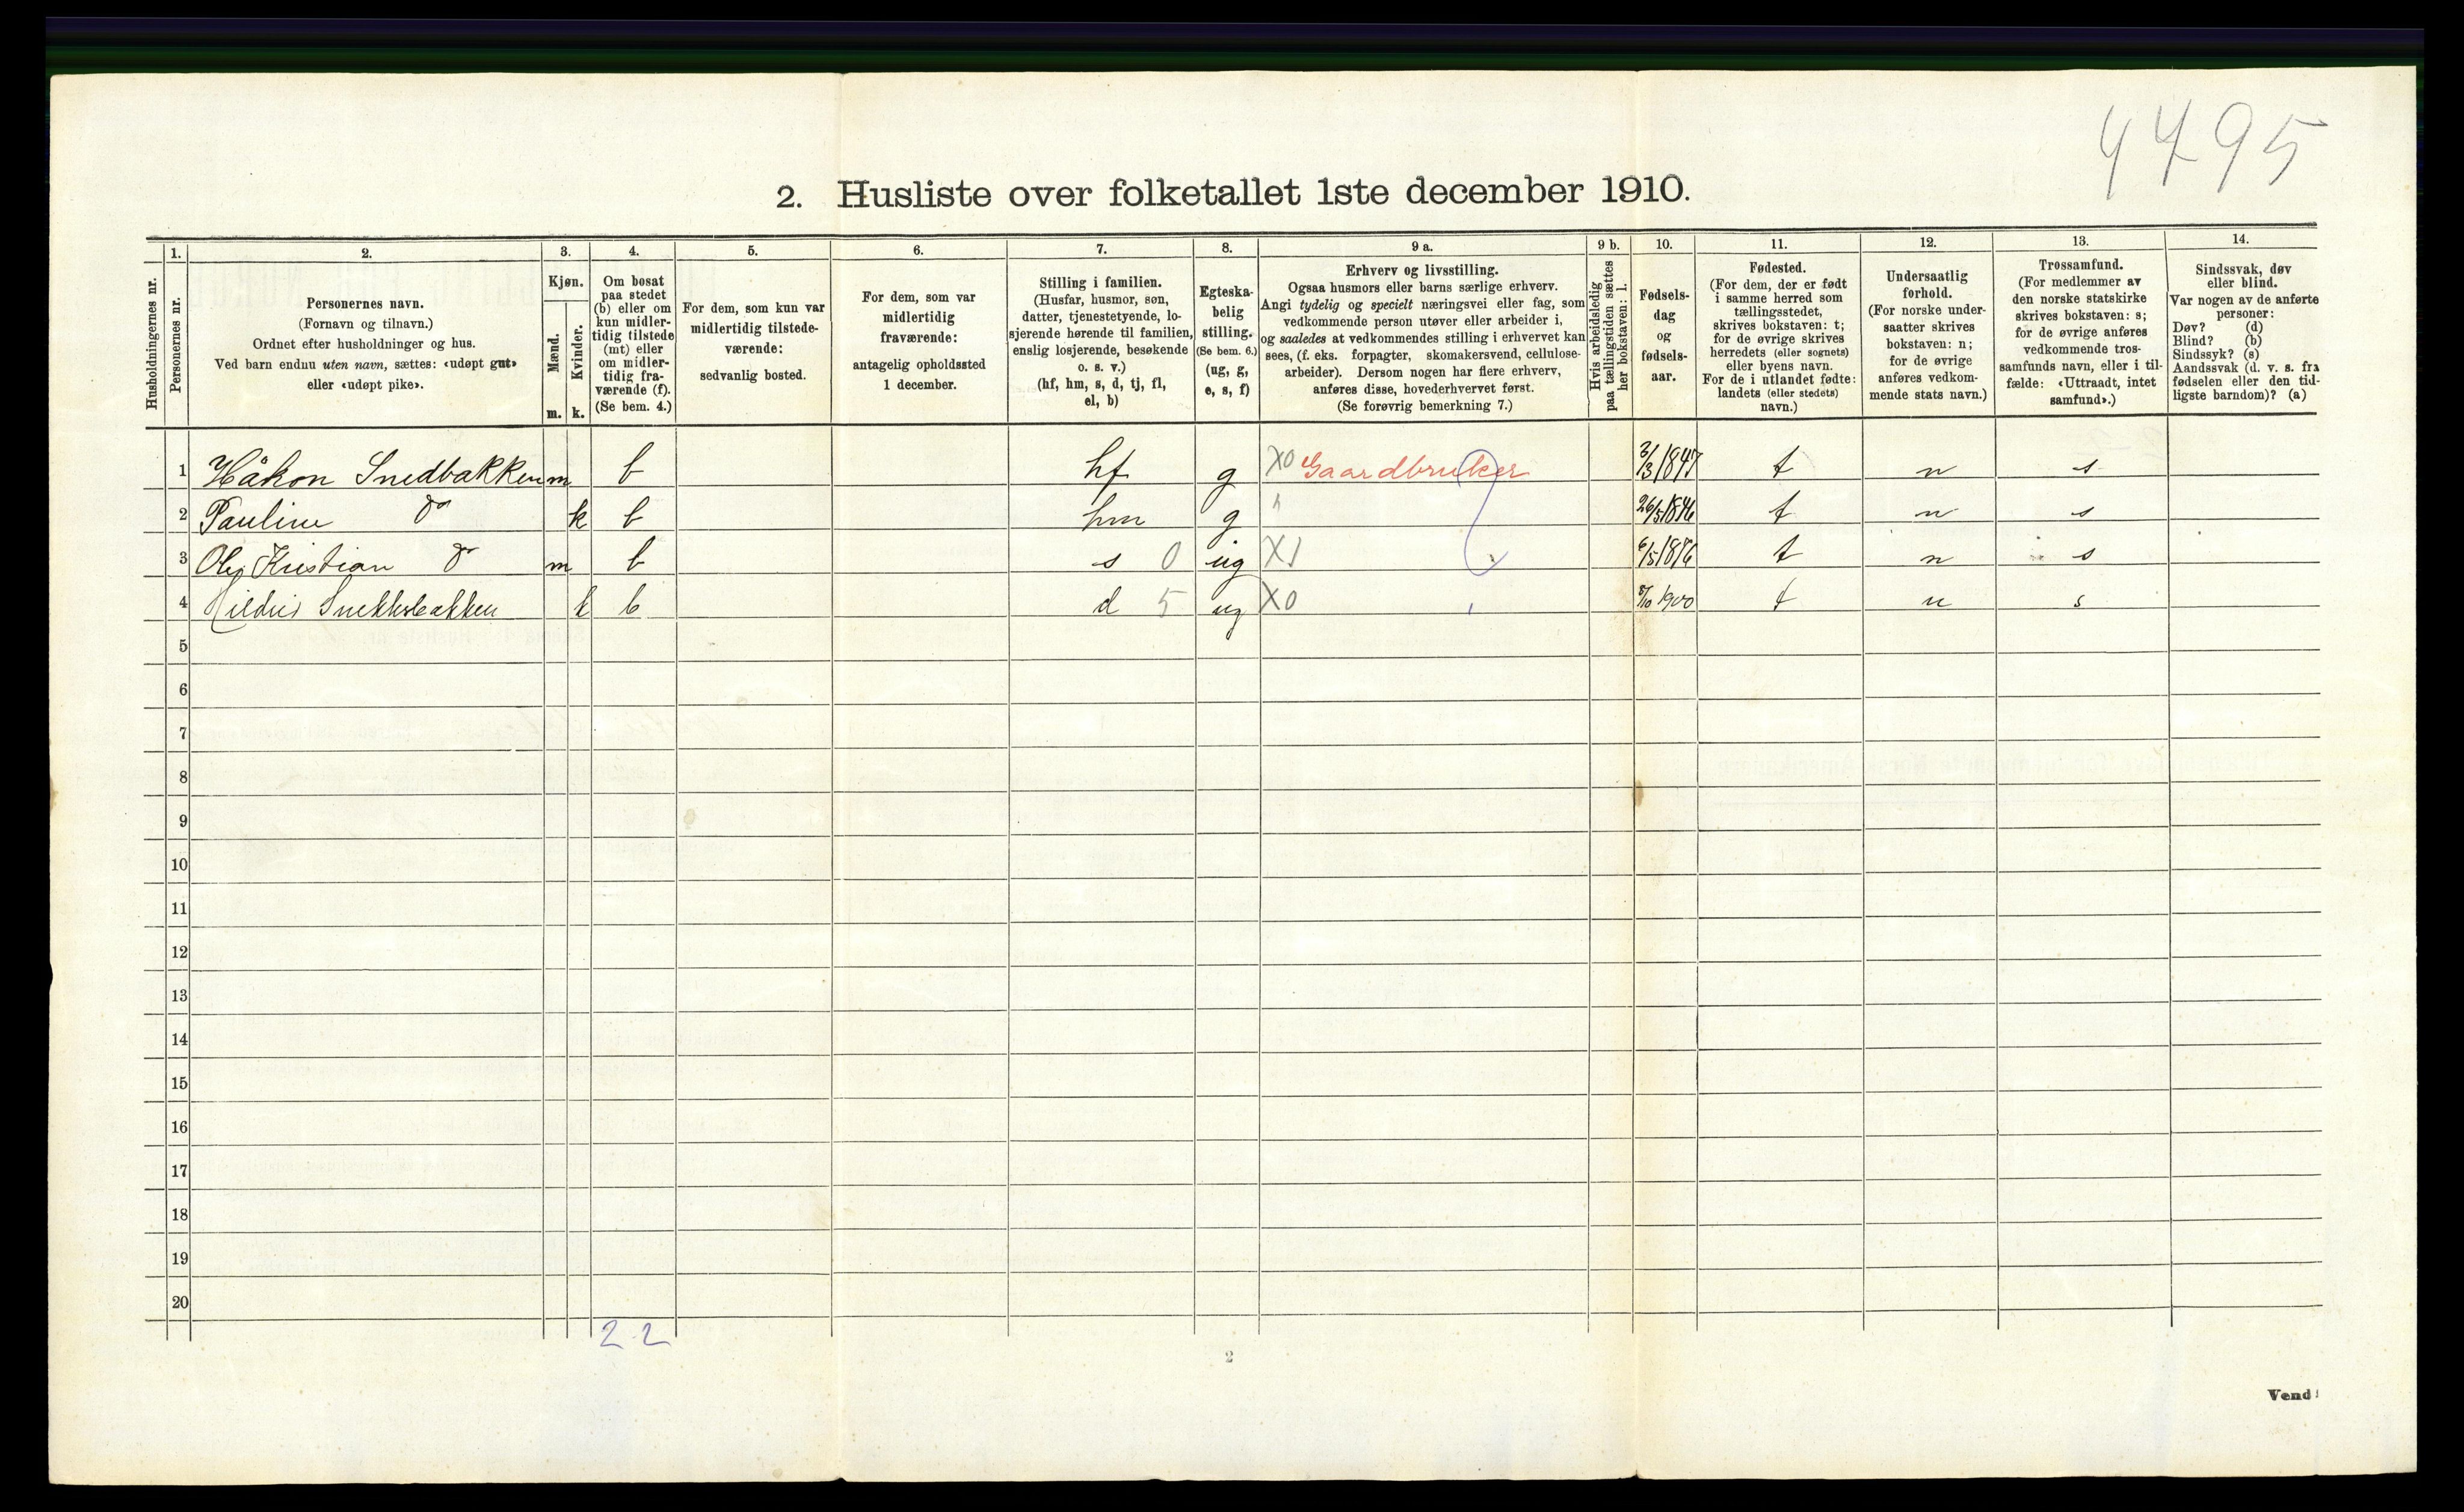 4495
2. Husliste over folketallet 1ste december 1910.
Husholdningernes nr.
1.
Personernes nr.
2.
Personernes navn.
(Fornavn og tilnavn.)
Ordnet efter husholdninger og hus.
Ved barn endnu uten navn, sættes: «udøpt gut»
eller «udøpt pike».
3.
Kjøn.
Mænd.
m.
Kvinder.
k.
4.
Om bosat
paa stedet
(b) eller om
kun midler-
tidig tilstede
(mt) eller
om midler-
tidig fra-
værende (f).
(Se bem. 4.)
5.
For dem, som kun var
midlertidig tilstede-
værende:
sedvanlig bosted.
6.
For dem, som var
midlertidig
fraværende:
antagelig opholdssted
1 december.
7.
Stilling i familien.
(Husfar, husmor, søn,
datter, tjenestetyende, lo-
sjerende hørende til familien,
enslig losjerende, besøkende
o. s. v.)
(hf, hm, s, d, tj, fl,
el, b)
8.
Egteska-
belig
stilling.
(Se bem. 6.)
(ug, g,
e, s, f)
9 a.
Erhverv og livsstilling.
Ogsaa husmors eller barns særlige erhverv.
Angi tydelig og specielt næringsvei eller fag, som
vedkommende person utøver eller arbeider i,
og saaledes at vedkommendes stilling i erhvervet kan
sees, (f. eks. forpagter, skomakersvend, cellulose-
arbeider). Dersom nogen har flere erhverv,
anføres disse, hovederhvervet først.
(Se forøvrig bemerkning 7.)
9 b.
Hvis arbeidsledig
paa tællingstiden sættes
her bokstaven: l.
10.
Fødsels-
dag
og
fødsels-
aar.
11.
Fødested.
(For dem, der er født
i samme herred som
tællingsstedet,
skrives bokstaven: t;
for de øvrige skrives
herredets (eller sognets)
eller byens navn.
For de i utlandet fødte:
landets (eller stedets)
navn.)
12.
Undersaatlig
forhold.
(For norske under-
saatter skrives
bokstaven: n;
for de øvrige
anføres vedkom-
mende stats navn.)
13.
Trossamfund.
(For medlemmer av
den norske statskirke
skrives bokstaven: s;
for de øvrige anføres
vedkommende tros-
samfunds navn, eller i til-
fælde: «Uttraadt, intet
samfund».)
14.
Sindssvak, døv
eller blind.
Var nogen av de anførte
personer:
Døv? (d)
Blind? (b)
Sindssyk? (s)
Aandssvak (d. v. s. fra
fødselen eller den tid-
ligste barndom)? (a)
1 Håkon Snedbakken m b hf g X0 Gaardbruker /3 1847 t n s
2 Pauline do k b hm g " 26/5 1846 t n s
3 Ole Kristian do m b s 0 ug X1 6/5 1876 t n s
4 Hildur Snekksbakken k b d 5 ug X0 /10 1900 t n s
5
6
7
8
9
10
11
12
13
14
15
16
17
18
19
20
2 2
2
Vend!